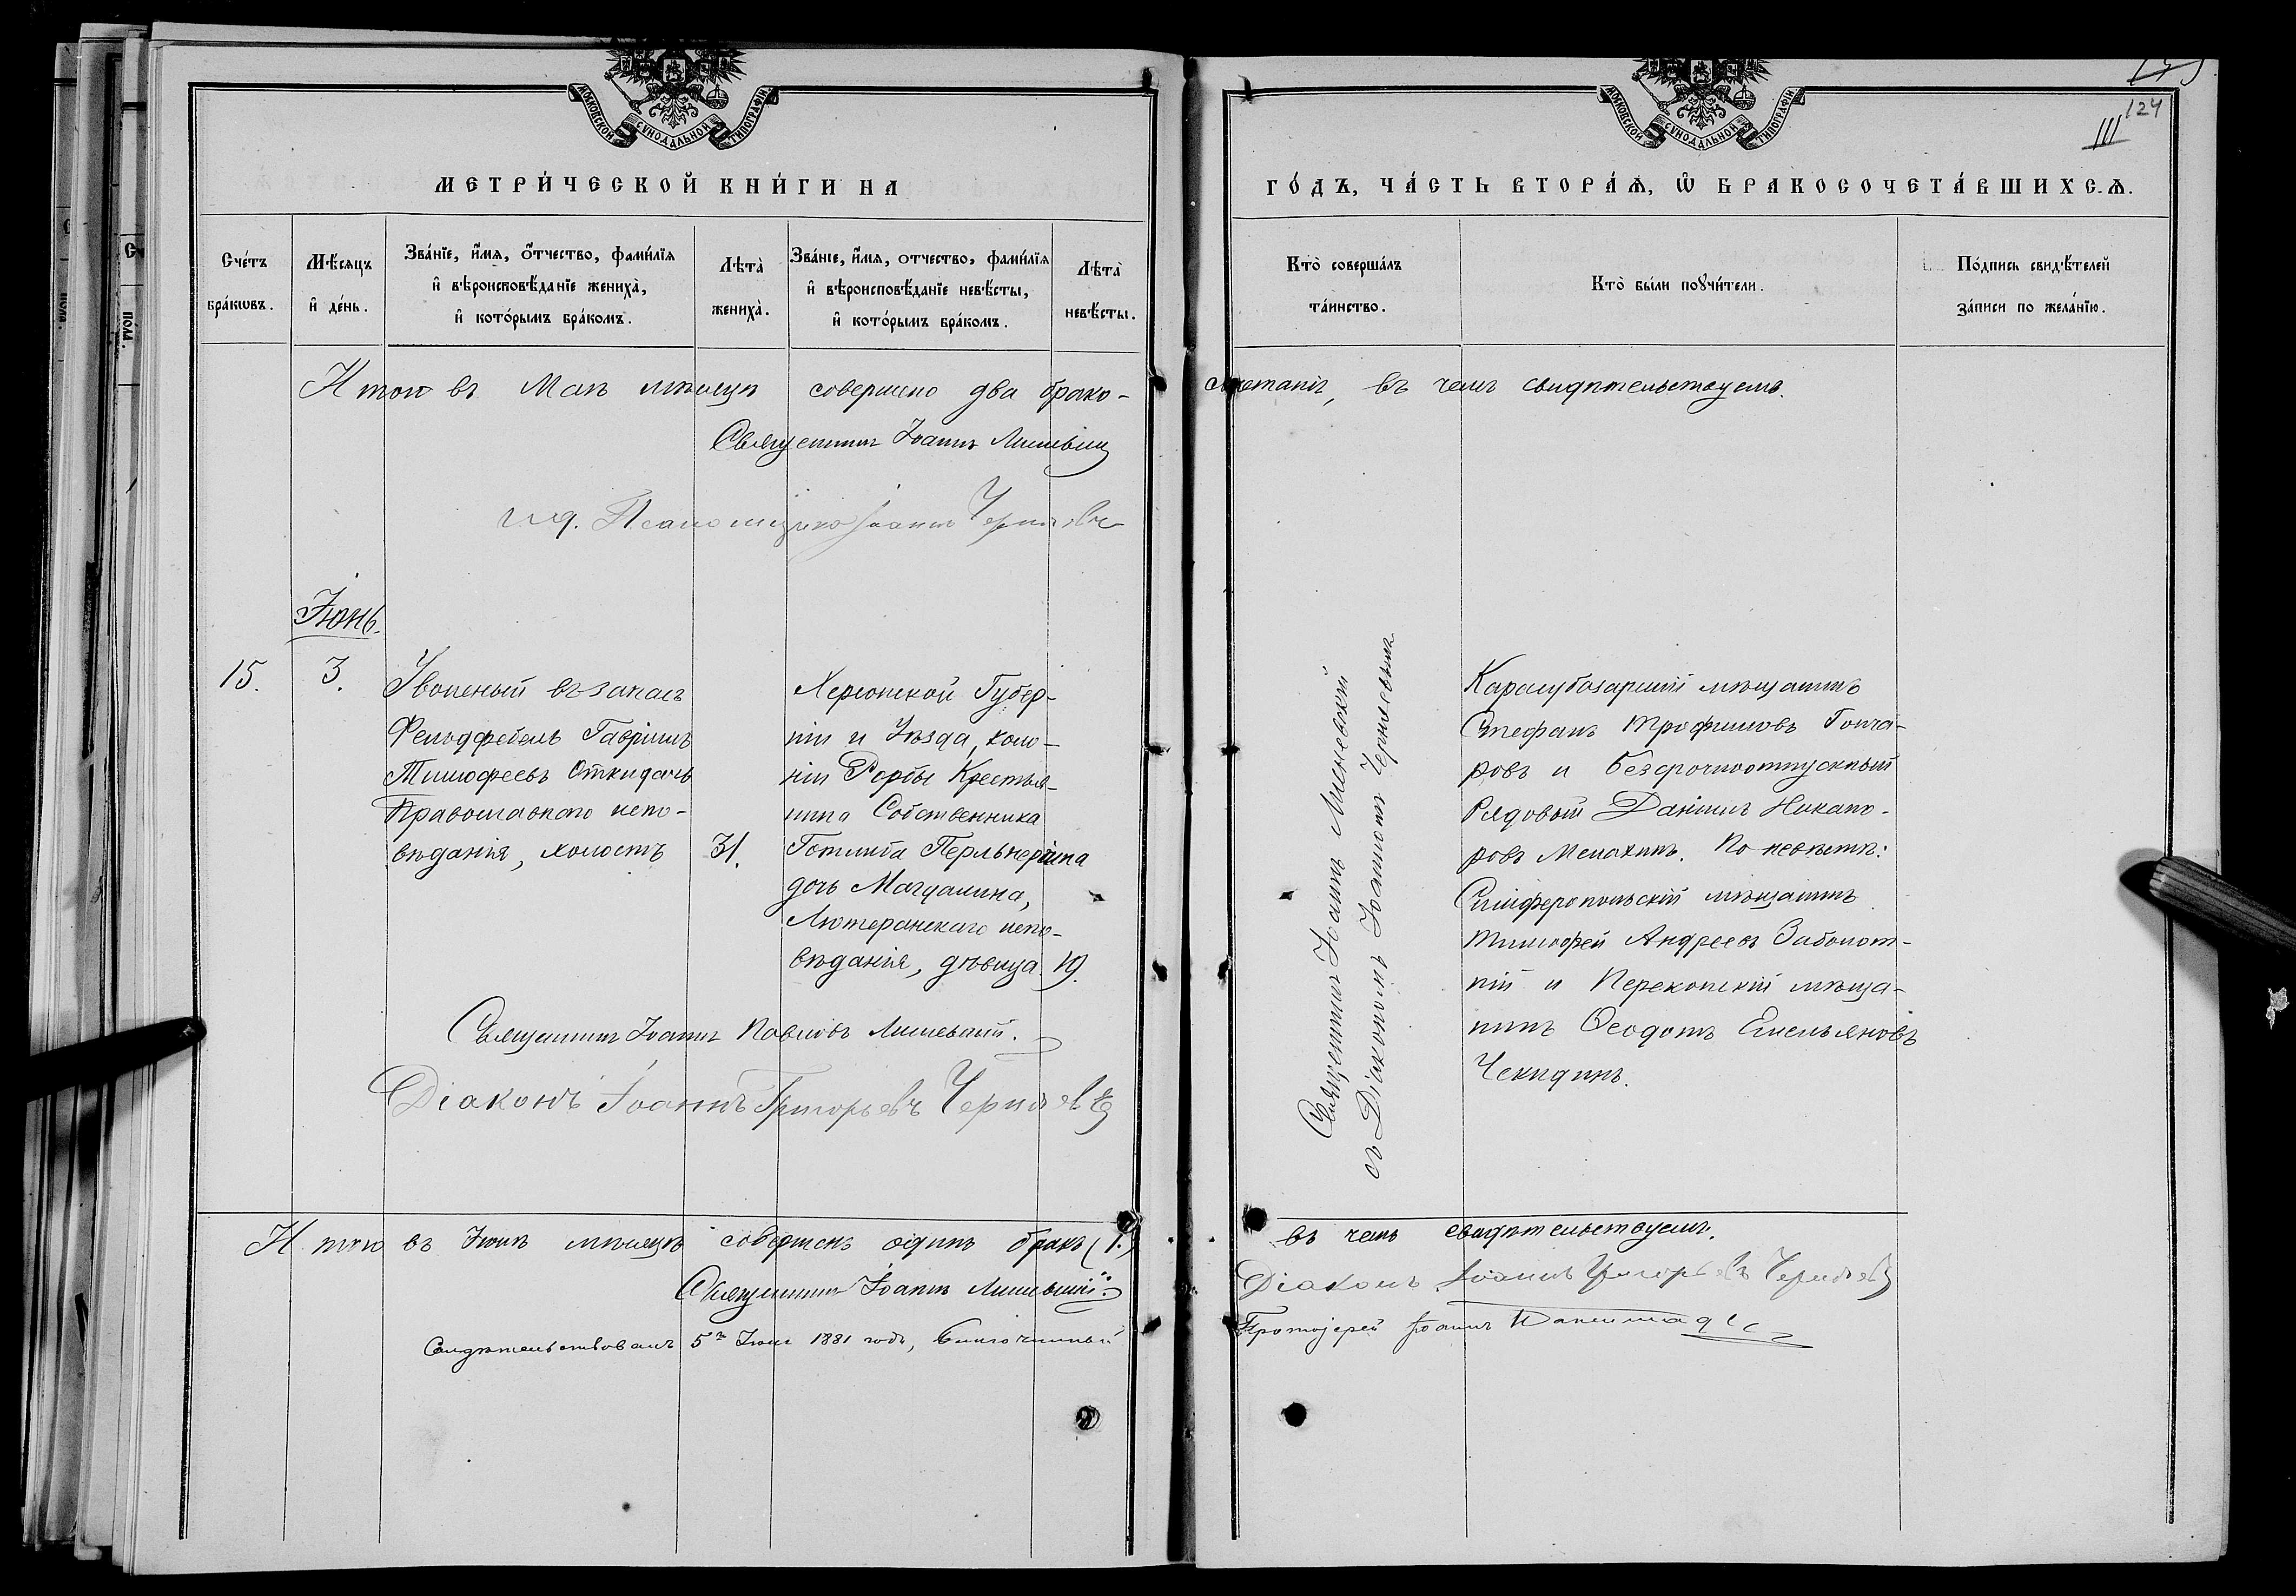 МОСКОВСКОЙ СѴНОДАЛЬНОЙ ТИПОГРАФІИ
МЕТРИ́ЧЕСКОЙ КНИ́ГИ НА
Сче́тъ бра́кωвъ.
Мѣ́сяцъ и҆ де́нь.
Зва́нїе, и҆́мѧ, ѻ҆́тчество, фами́лїѧ
и҆ вѣроисповѣ́данїе жениха̀,
и҆ кото́рымъ бра́комъ.
Лѣта̀ жениха̀.
Зва́нїе, и҆́мѧ, отчество, фами́лїѧ
и҆ вѣроисповѣ́данїе невѣ́сты,
и҆ кото́рымъ бра́комъ.
Лѣта̀ невѣ́сты.
Итого въ Маѣ мѣсяцѣ совершено два брако-
Священникъ Іоаннъ
и.д. Псаломщика Іоаннъ
Іюнь.
15.
3.
Уволеный въ запасъ
Фельдфебель Гавріилъ
Тимофеевъ Откидачъ
Православнаго испо-
вѣданія, холостъ
31.
Херсонской Губер-
ніи и Уѣзда, коло-
ніи Рорбы Крестья-
нина Собственника
Готлиба
дочь Магдалина,
Лютеранскаго испо-
вѣданія, дѣвица
19.
Священникъ Іоаннъ Павловъ
Діаконъ Іоаннъ Григорьевъ
Итого въ Іюнѣ мѣсяцѣ совершенъ одинъ бракъ (1.)
Священникъ Іоаннъ
Свидѣтельствовалъ 5го 1881 года, Благочинный
124
111
МОСКОВСКОЙ СѴНОДАЛЬНОЙ ТИПОГРАФІИ
ГО́ДЪ, ЧА́СТЬ ВТОРА́Ѧ, Ѡ҆ БРАКОСОЧЕТА́ВШИХСѦ.
Кто̀ соверша́лъ та́инство.
Кто̀ бы́ли поꙋчи́тели.
По́дпись свидѣ́телей
за́писи по жела́нїю.
сочетанія, въ чемъ свидѣтельствуемъ.
Священникъ Іоаннъ
съ Діакономъ Іоанномъ
Карасубазарскій мѣщанинъ
Стефанъ Трофимовъ Гонча-
ровъ и безсрочноотпускный
Рядовый Даніилъ Никано-
ровъ По невѣстѣ:
Симферопольскій мѣщанинъ
Тимофей Андреевъ Заболот-
ній и Перекопскій мѣща-
нинъ Ѳеодотъ Емельяновъ
Чекидинъ.
въ чемъ свидѣтельствуемъ.
Діаконъ Іоаннъ Григорьевъ
Протоіерей Іоаннъ